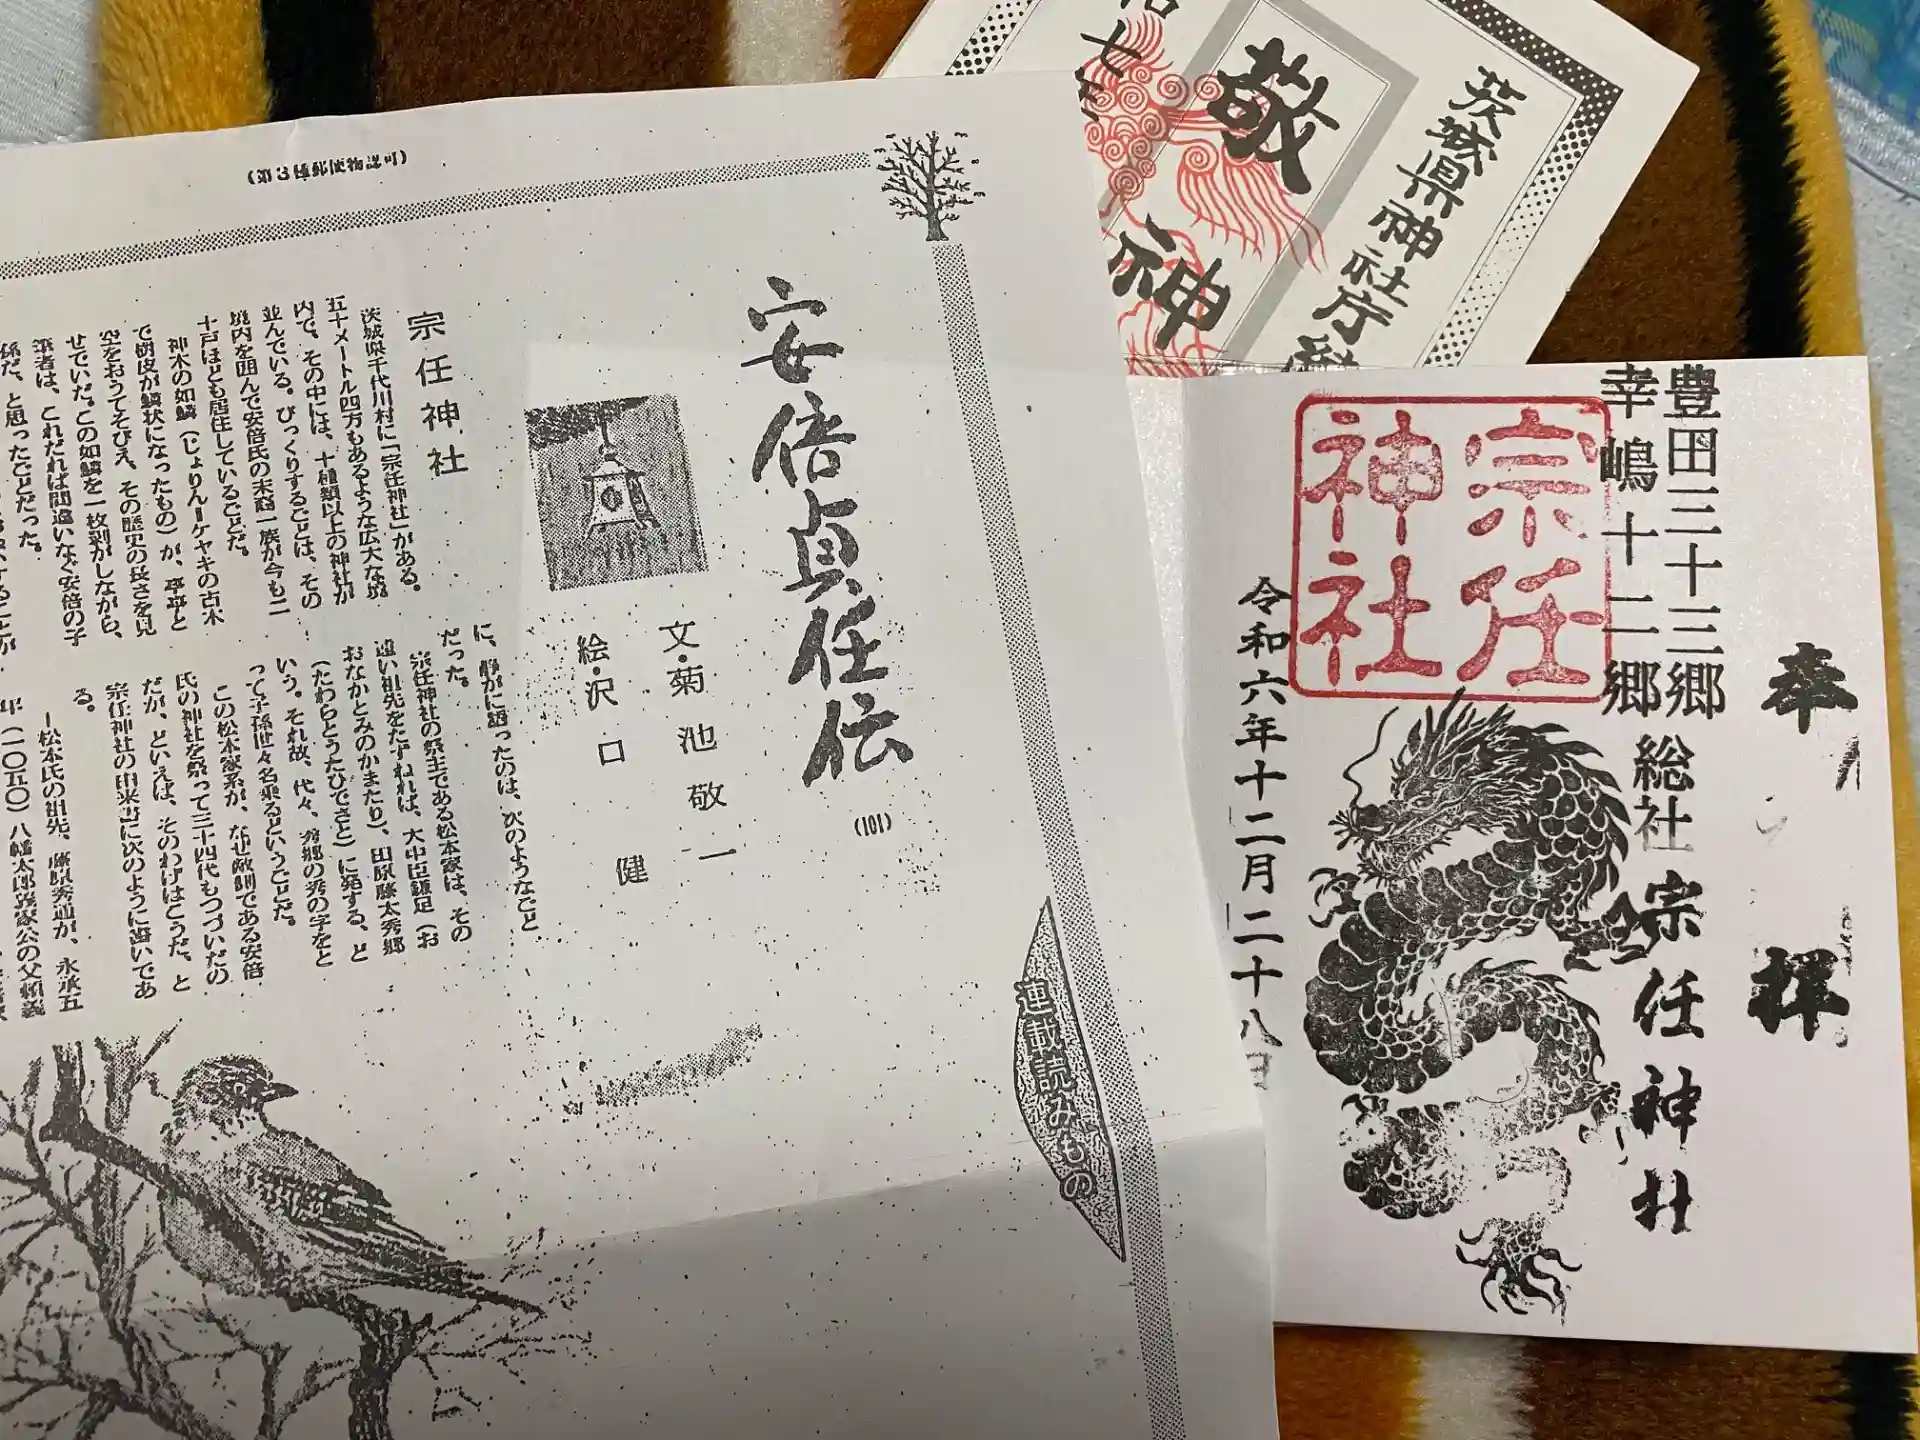 (第3種郵便物認可)
安倍貞任伝
(101)
文・菊池敬一
絵・沢口 健
連載読みもの
宗任神社
茨城県千代川村に「宗任神社」がある。
五十メートル四方もあるような広大な境
内で、その中には、十種類以上の神社が
並んでいる。びっくりすることは、その
境内を囲んで安倍氏の末裔一族が今も二
十戸ほども居住していることだ。
神木の如鱗(じょりん=ケヤキの古木
で樹皮が鱗状になったもの)が、亭亭と
空をおうてそびえ、その歴史の長さを見
せていた。この如鱗を一枚剥がしながら、
筆者は、これだれば間違いなく安倍の子
孫だ、と思ったことだった。
に、静かに語ったのは、次のようなこと
だった。
宗任神社の祭主である松本家は、その
遠い祖先をたずねれば、大中臣鎌足(お
おなかとみのかまたり)、田原藤太秀郷
(たわらとうたひでさと)に発する、と
いう。それ故、代々、秀郷の秀の字をと
って子孫世々名乗るということだ。
この松本家系が、なぜ敵側である安倍
氏の神社を祭って三十四代もつづいたの
だが、といえば、そのわけはこうだ、と
宗任神社の由来書に次のように書いてあ
る。
―松本氏の祖先、藤原秀通が、永承五
年(一〇五〇)八幡太郎義家公の父頼義
茨城県神社庁
敬神
七年
奉拝
豊田三十三郷
幸嶋十二郷
総社 宗任神社
宗任神社
令和六年十二月二十八日